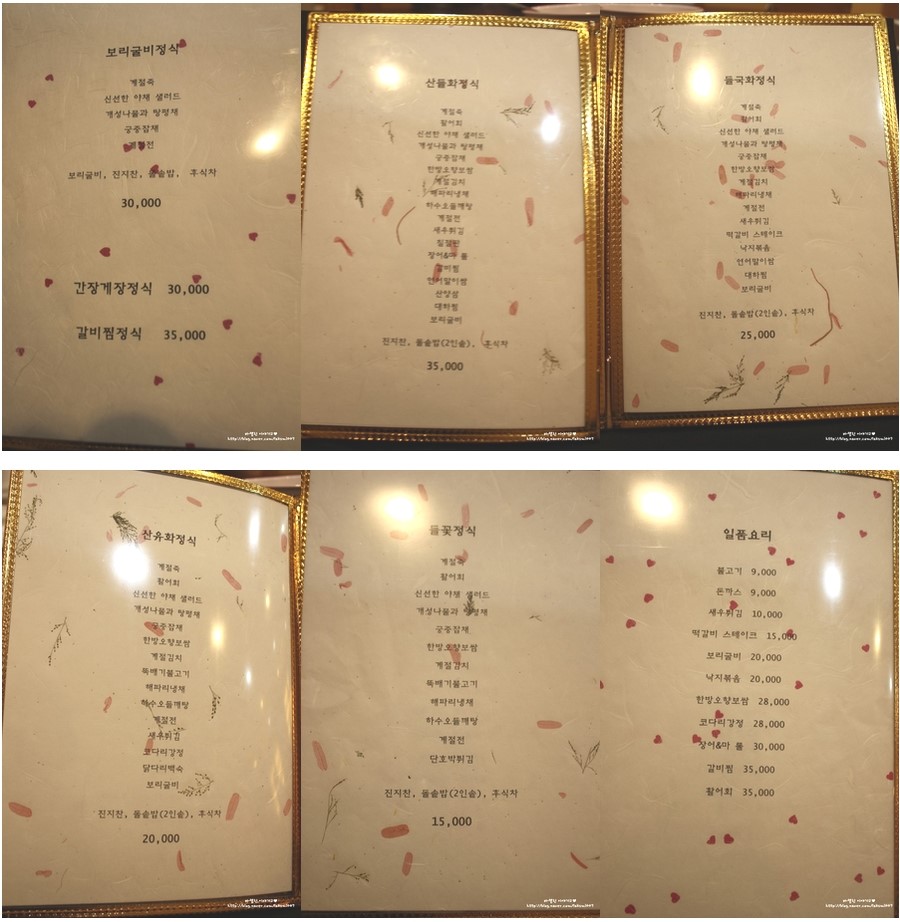 보리굴비정식
계절죽
신선한 야채 샐러드
개성나물과 탕평채
궁중잡채
계절전
보리굴비, 진지찬, 돌솥밥, 후식차
30,000
간장게장정식 30,000
갈비찜정식 35,000
산들화정식
계절죽
활어회
신선한 야채 샐러드
개성나물과 탕평채
궁중잡채
한방오향보쌈
계절김치
해파리냉채
하수오들깨탕
계절전
새우튀김
칠절판
장어&마 롤
갈비찜
연어말이쌈
산양삼
대하찜
보리굴비
진지찬, 돌솥밥(2인솥), 후식차
35,000
들국화정식
계절죽
활어회
신선한 야채 샐러드
개성나물과 탕평채
궁중잡채
한방오향보쌈
계절김치
해파리냉채
계절전
새우튀김
떡갈비 스테이크
낙지볶음
연어말이쌈
대하찜
보리굴비
진지찬, 돌솥밥(2인솥), 후식차
25,000
산유화정식
계절죽
활어회
신선한 야채 샐러드
개성나물과 탕평채
궁중잡채
한방오향보쌈
계절김치
뚝배기불고기
해파리냉채
하수오들깨탕
계절전
새우튀김
코다리강정
닭다리백숙
보리굴비
진지찬, 돌솥밥(2인솥), 후식차
20,000
들꽃정식
계절죽
활어회
신선한 야채 샐러드
개성나물과 탕평채
궁중잡채
한방오향보쌈
계절김치
뚝배기불고기
해파리냉채
하수오들깨탕
계절전
단호박튀김
진지찬, 돌솥밥(2인솥), 후식차
15,000
일품요리
불고기 9,000
돈까스 9,000
새우튀김 10,000
떡갈비 스테이크 15,000
보리굴비 20,000
낙지볶음 20,000
한방오향보쌈 28,000
코다리강정 28,000
장어&마 롤 30,000
갈비찜 35,000
활어회 35,000